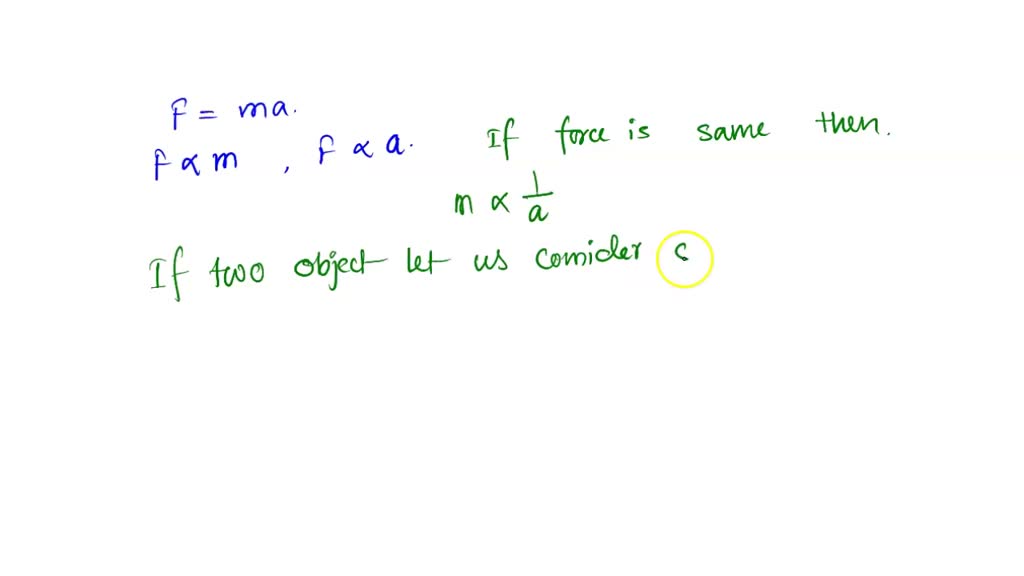 F = ma.
F ∝ m , F ∝ a. If force is same then.
m ∝ 1/a
If two object let us consider